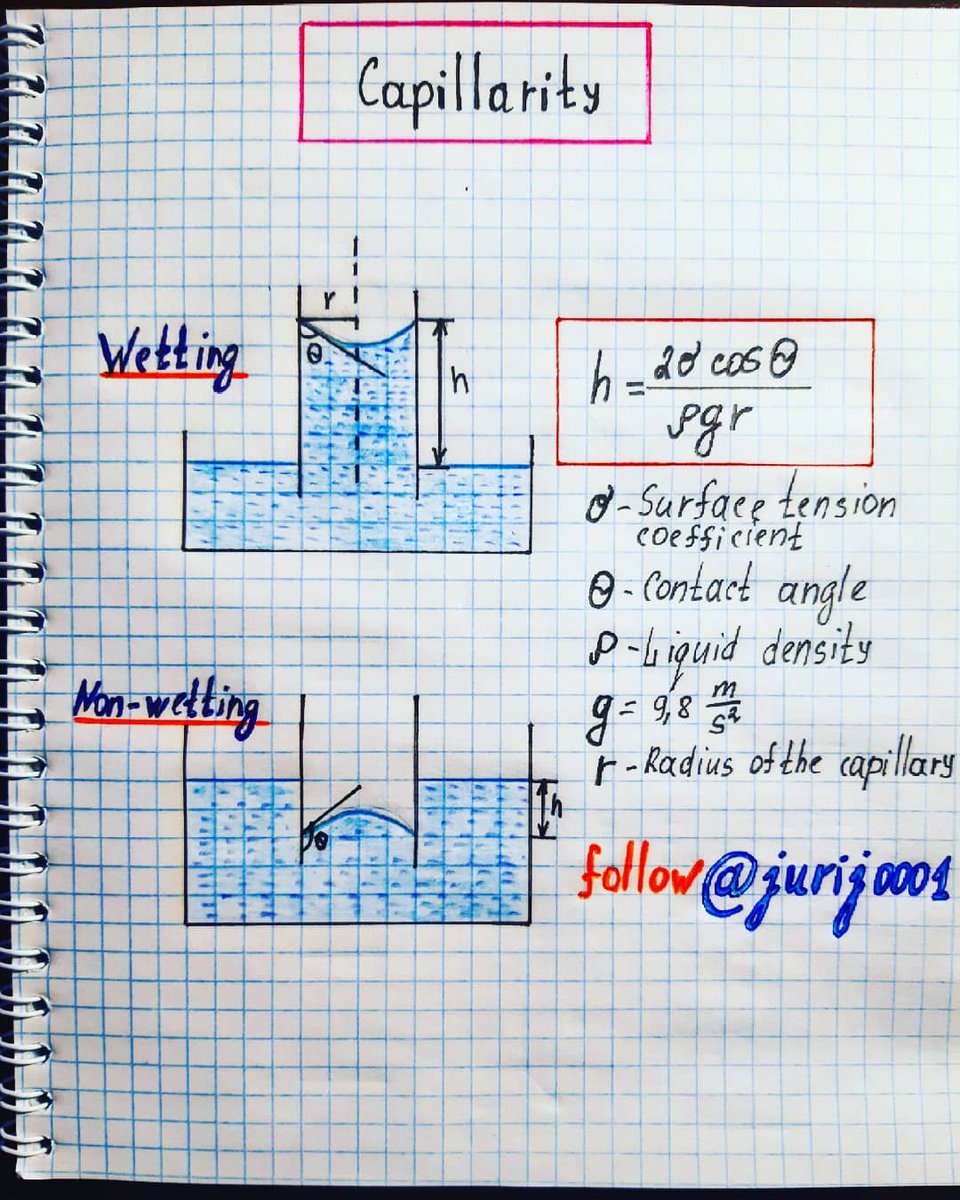 Capillarity
r
Wetting
θ
h
h = 2σ cos θ
ρgr
σ - Surface tension
coefficient
θ - Contact angle
ρ - Liquid density
g = 9,8 m/s²
r - Radius of the capillary
Non-wetting
h
θ
follow @jurij0001